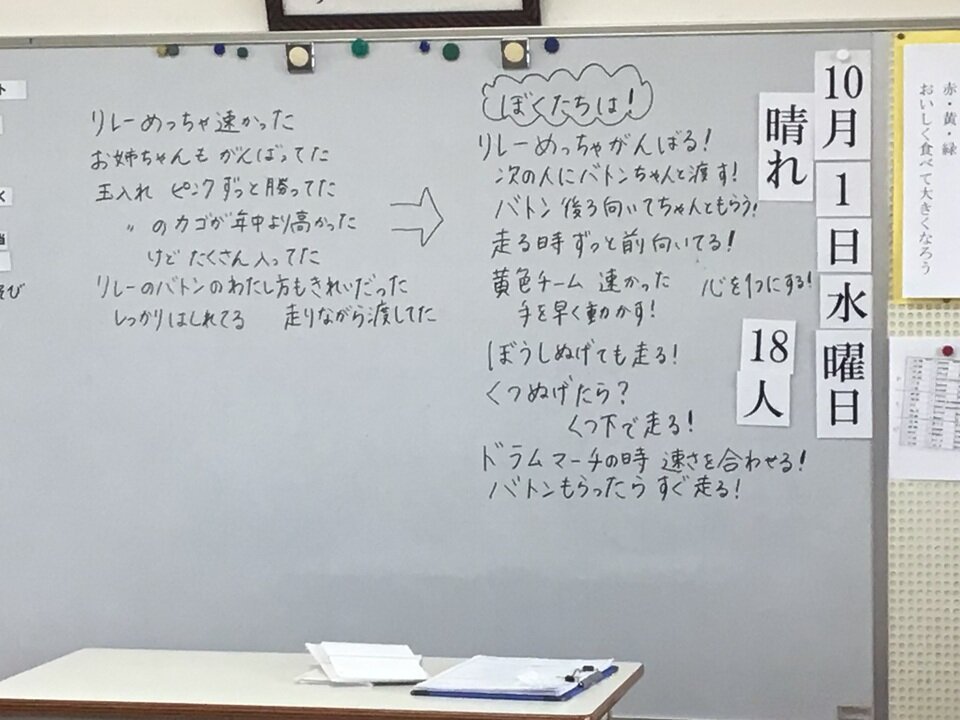 リレーめっちゃ速かった
お姉ちゃんも がんばってた
玉入れ ピンクずっと勝ってた
〃 のカゴが年中より高かった
けど たくさん入ってた
リレーのバトンのわたし方もきれいだった
しっかりはしれてる 走りながら渡してた
ぼくたちは!
リレーめっちゃがんばる!
次の人にバトンちゃんと渡す!
バトン 後ろ向いてちゃんともらう!
走る時 ずっと前向いてる!
黄色チーム 速かった 心を1つにする!
手を早く動かす!
ぼうしぬげても走る!
くつぬげたら?
くつ下で走る!
ドラムマーチの時 速さを合わせる!
バトンもらったら すぐ走る!
10月1日水曜日
晴れ
18人
赤・黄・緑
おいしく食べて大きくなろう